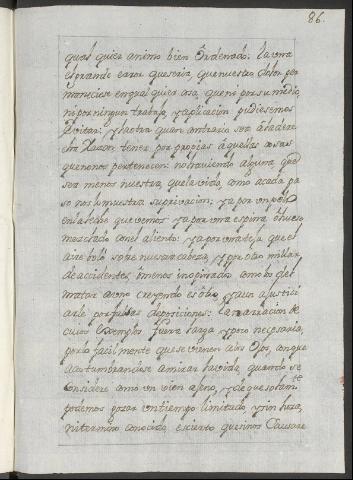 86.
qual quier animo bien Ordenado: la una
el grande error que seria, que nuestro dolor per
maneciese en qual quier cosa, que ni por su medio,
ni por ningun trabajo, y aplicacion pudiesemos
evitar: y la otra quan contrario sea á la dere
cha Razon tener por propias á quellas cosas
que no nos pertenecen: no haviendo alguna que
sea menos nuestra, que la vida, como acada pa
so nos lo muestra su privacion; ya por un pelo
en la leche que vemos ya por una espina ó hueso
mezclado con el aliento: ya por una teja que el
aire boló sobre nuestra cabeza, y por otro millar
de accidentes, ó menos inopinados como los del
matar a uno creyendo es ôtro, y aun ajustici
arle por falsas deposiciones: la narracion de
cuios exemplos fuera larga y poco necesaria,
por lo facilmente que se vienen a los Ojos, aunque
acostumbrandose a mirar la vida, quando se
considere como un vien ageno, y de que solam.te
podemos gozar un tiempo limitado, y sin
ni termino conocido, es cierto que sinos Causare